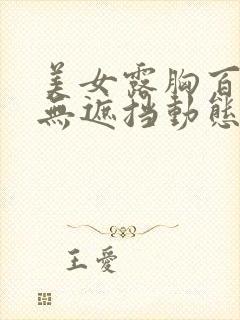 美女露胸百
無遮挡動態
王愛